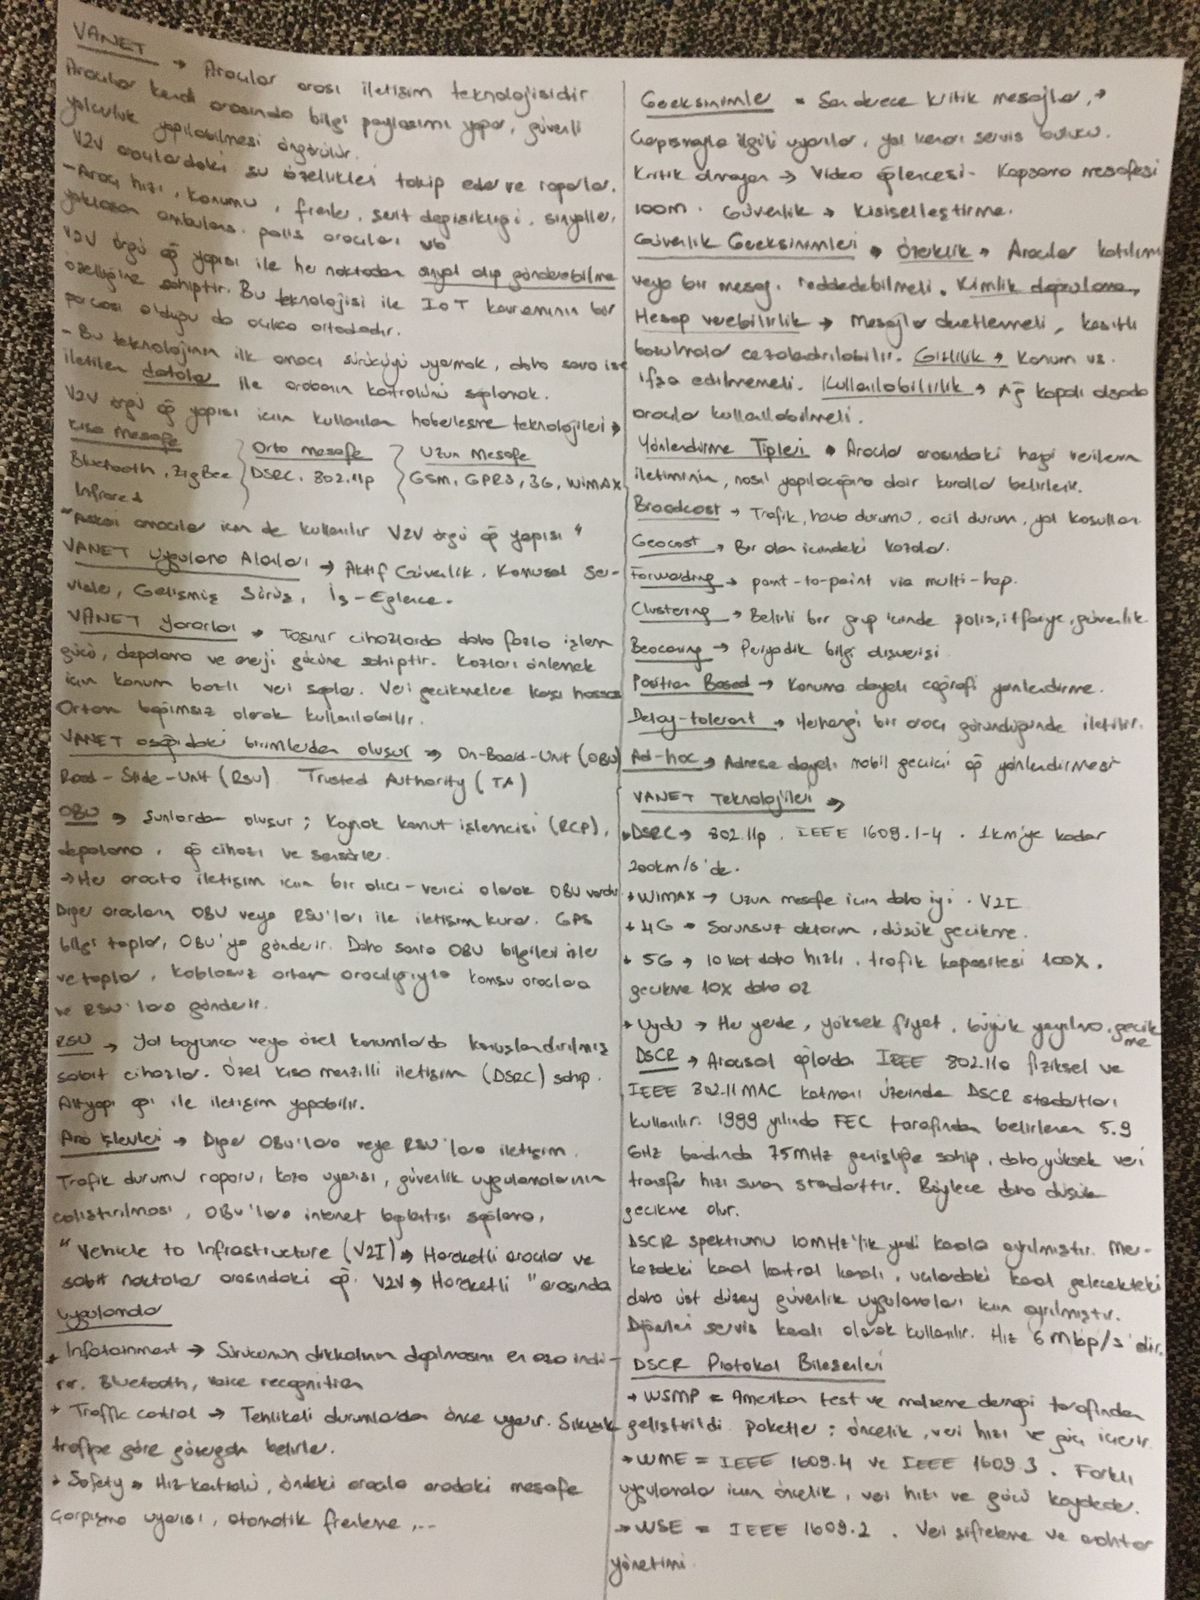 VANET → Araçlar arası iletişim teknolojisidir
Araçlar kendi arasında bilgi paylaşımı yapar, güvenli
yolculuk yapılabilmesi öngörülür.
V2V araçlardaki şu özellikleri takip eder ve raporlar.
- Araç hızı, konumu, frenler, şerit değişikliği, sinyaller,
yaklaşan ambulans, polis araçları vb
V2V örgü ağ yapısı ile her noktadan sinyal alıp gönderebilme
özelliğine sahiptir. Bu teknolojisi ile IoT kavramının bir
parçası olduğu da açıkca ortadadır.
- Bu teknolojinin ilk amacı sürücüyü uyarmak, daha sonra ise
iletilen datalar ile arabanın kontrolünü sağlamak.
V2V örgü ağ yapısı için kullanılan haberleşme teknolojileri →
Kısa Mesafe Orta mesafe Uzun Mesafe
Bluetooth, ZigBee DSRC, 802.11p GSM, GPRS, 3G, WiMAX
Infrared
"Askeri amaçlar için de kullanılır V2V örgü ağ yapısı"
VANET Uygulama Alanları → Aktif Güvenlik, Kamusal Ser-
visler, Gelişmiş Sürüş, İş-Eğlence.
VANET Yararları → Taşınır cihazlarda daha fazla işlem
gücü, depolama ve enerji gücüne sahiptir. Kazaları önlemek
için konum bazlı veri sağlar. Veri gecikmelere karşı hassas
Ortam bağımsız olarak kullanılabilir.
VANET aşağıdaki birimlerden oluşur → On-Board-Unit (OBU)
Road-Side-Unit (RSU) Trusted Authority (TA)
OBU → Şunlardan oluşur; Kaynak komut işlemcisi (RCP),
depolama, ağ cihazı ve sensörler.
→ Her araçta iletişim için bir alıcı-verici olarak OBU vardır
Diğer araçların OBU veya RSU'ları ile iletişim kurar. GPS
bilgi toplar, OBU'ya gönderir. Daha sonra OBU bilgileri izler
ve toplar, kablosuz ortam aracılığıyla komşu araçlara
ve RSU'lara gönderir.
RSU → Yol boyunca veya özel konumlarda konuşlandırılmış
sabit cihazlar. Özel kısa menzilli iletişim (DSRC) sahip.
Altyapı ağı ile iletişim yapabilir.
Ana işlevleri → Diğer OBU'lara veya RSU'lara iletişim.
Trafik durumu raporu, kaza uyarısı, güvenlik uygulamalarının
çalıştırılması, OBU'lara internet bağlantısı sağlama.
"Vehicle to Infrastructure (V2I) → Hareketli araçlar ve
sabit noktalar arasındaki ağ. V2V → Hareketli " arasında
Uygulamalar
→ Infotainment → Sürücünün dikkatinin dağılmasını en aza indi-
rir. Bluetooth, voice recognition
→ Traffic control → Tehlikeli durumlardan önce uyarır. Sıkışık
trafiğe göre güzergah belirler.
→ Safety → Hız kontrolü, öndeki araçla aradaki mesafe
Çarpışma uyarısı, otomatik frenleme ...
Gereksinimler = Son derece kritik mesajlar, →
Çarpışmayla ilgili uyarılar, yol kenarı servis bulucu.
Kritik olmayan → Video eğlencesi. Kapsama mesafesi
100m. Güvenlik → Kişiselleştirme.
Güvenlik Gereksinimleri → Özerklik → Araçlar katılımı
veya bir mesajı reddedebilmeli. Kimlik doğrulama,
Hesap verebilirlik → Mesajlar denetlenmeli, kasıtlı
bozulmalar cezalandırılabilir. Gizlilik → Konum vs.
ifşa edilmemeli. Kullanılabilirlik → Ağ kapalı olsada
araçlar kullanılabilmeli.
Yönlendirme Tipleri → Araçlar arasındaki hangi verilerin
iletiminin, nasıl yapılacağına dair kurallar belirlenir.
Broadcast → Trafik, hava durumu, acil durum, yol koşulları
Geocast → Bir alan içindeki kazalar.
Forwarding → point-to-point via multi-hop.
Clustering → Belirli bir grup içinde polis, itfaiye, güvenlik
Beaconing → Periyodik bilgi alışverişi
Position Based → Konuma dayalı coğrafi yönlendirme.
Delay-tolerant → Herhangi bir araç göründüğünde iletilir.
Ad-hoc → Adrese dayalı mobil geçici ağ yönlendirmesi
VANET Teknolojileri →
→ DSRC → 802.11p, IEEE 1609.1-4. 1km'ye kadar
200km/s'de.
→ WiMAX → Uzun mesafe için daha iyi. V2I
→ 4G → Sorunsuz aktarım, düşük gecikme.
→ 5G → 10 kat daha hızlı, trafik kapasitesi 100X,
gecikme 10X daha az
→ Uydu → Her yerde, yüksek fiyat, büyük yayılma, gecik
me
DSCR → Araçsal ağlarda IEEE 802.11a fiziksel ve
IEEE 802.11 MAC katmanı üzerinde DSCR standartları
kullanılır. 1999 yılında FEC tarafından belirlenen 5.9
GHz bandında 75MHz genişliğe sahip, daha yüksek veri
transfer hızı sunan standarttır. Böylece daha düşük
gecikme olur.
DSCR spektrumu 10MHz'lik yedi kanala ayrılmıştır. Mer-
kezdeki kanal kontrol kanalı, uçlardaki kanal gelecekteki
daha üst düzey güvenlik uygulamaları için ayrılmıştır.
Diğerleri servis kanalı olarak kullanılır. Hız 6 Mbp/s'dir.
DSCR Protokol Bileşenleri
→ WSMP = Amerikan test ve malzeme derneği tarafından
geliştirildi. Paketler: öncelik, veri hızı ve güç içerir.
→ WME = IEEE 1609.4 ve IEEE 1609.3. Farklı
uygulamalar için öncelik, veri hızı ve gücü kaydeder.
→ WSE = IEEE 1609.2. Veri şifreleme ve anahtar
yönetimi.